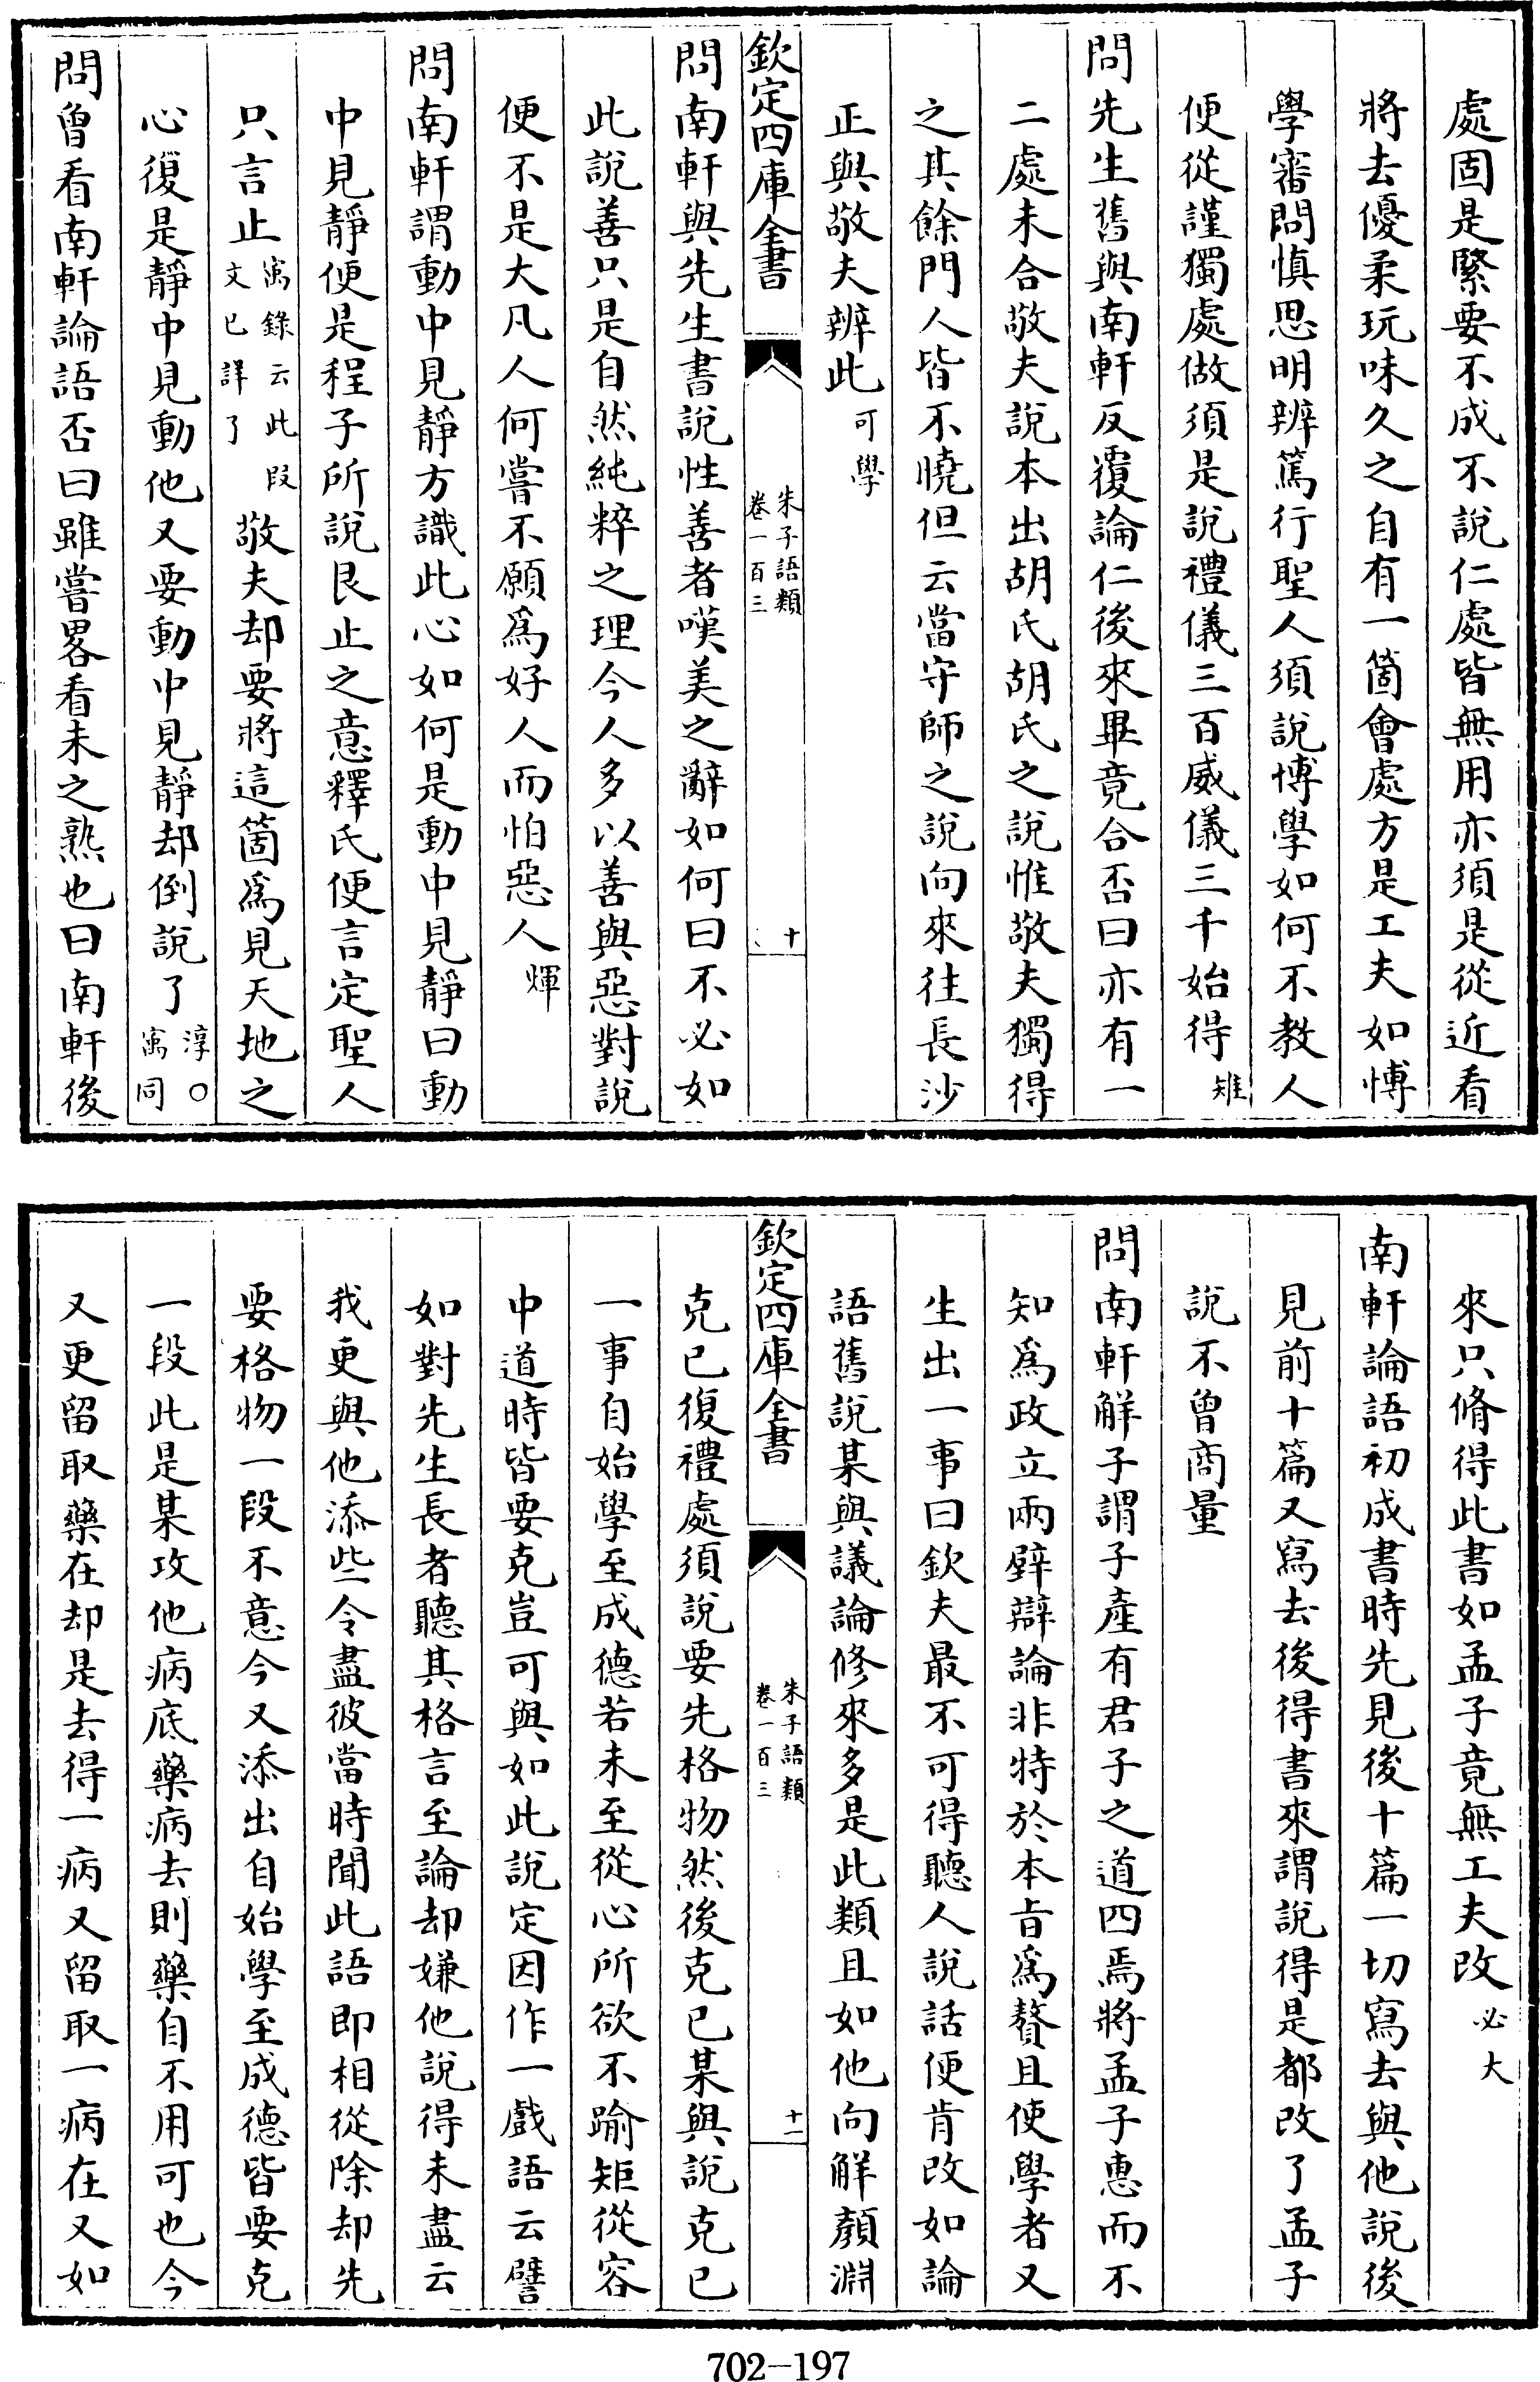 處固是緊要不成不說仁處皆無用亦須是從近看
將去優柔玩味久之自有一箇會處方是工夫如博
學審問慎思明辨篤行聖人須說博學如何不教人
便從謹獨處做須是說禮儀三百威儀三千始得雉
問先生舊與南軒反覆論仁後來畢竟合否曰亦有一
二處未合敬夫說本出胡氏胡氏之說惟敬夫獨得
之其餘門人皆不曉但云當守師之說向來往長沙
正與敬夫辨此可學
欽定四庫全書
朱子語類
卷一百三
十
問南軒與先生書說性善者嘆美之辭如何曰不必如
此說善只是自然純粹之理今人多以善與惡對說
便不是大凡人何嘗不願為好人而怕惡人煇
問南軒謂動中見靜方識此心如何是動中見靜曰動
中見靜便是程子所說艮止之意釋氏便言定聖人
只言止㝢錄云此段文已詳了敬夫却要將這箇為見天地之
心復是靜中見動他又要動中見靜却倒說了淳○㝢同
問曾看南軒論語否曰雖嘗畧看未之熟也曰南軒後
來只脩得此書如孟子竟無工夫改必大
南軒論語初成書時先見後十篇一切寫去與他說後
見前十篇又寫去後得書來謂說得是都改了孟子
說不曾商量
問南軒解子謂子產有君子之道四焉將孟子惠而不
知為政立兩壁辯論非特於本旨為贅且使學者又
生出一事曰欽夫最不可得聽人說話便肯改如論
語舊說某與議論修來多是此類且如他向解顏淵
欽定四庫全書
朱子語類
卷一百三
十一
克已復禮處須說要先格物然後克已某與說克已
一事自始學至成德若未至從心所欲不踰矩從容
中道時皆要克豈可與如此說定因作一戲語云譬
如對先生長者聽其格言至論却嫌他說得未盡云
我更與他添些令盡彼當時聞此語即相從除却先
要格物一段不意今又添出自始學至成德皆要克
一段此是某攻他病底藥病去則藥自不用可也今
又更留取藥在却是去得一病又留取一病在又如
702-197